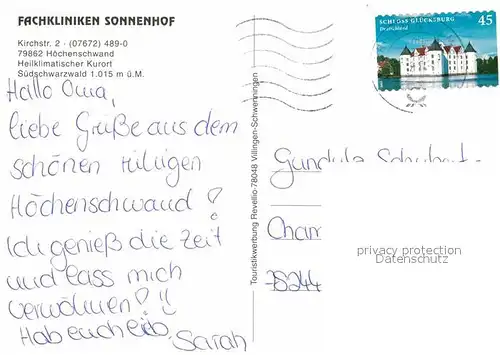 FACHKLINIKEN SONNENHOF
Kirchstr. 2 · (07672) 489-0
79862 Höchenschwand
Heilklimatischer Kurort
Südschwarzwald 1.015 m ü.M.
Hallo Oma,
liebe Grüße aus dem
schönen
Höchenschwand!
Ich genieß die Zeit
und lass mich
verwöhnen!!
Hab euch lieb Sarah
Touristikwerbung Revellio·78048 Villingen-Schwenningen
SCHLOSS GLÜCKSBURG 45
Deutschland
Gundula
Cham
privacy protection
Datenschutz